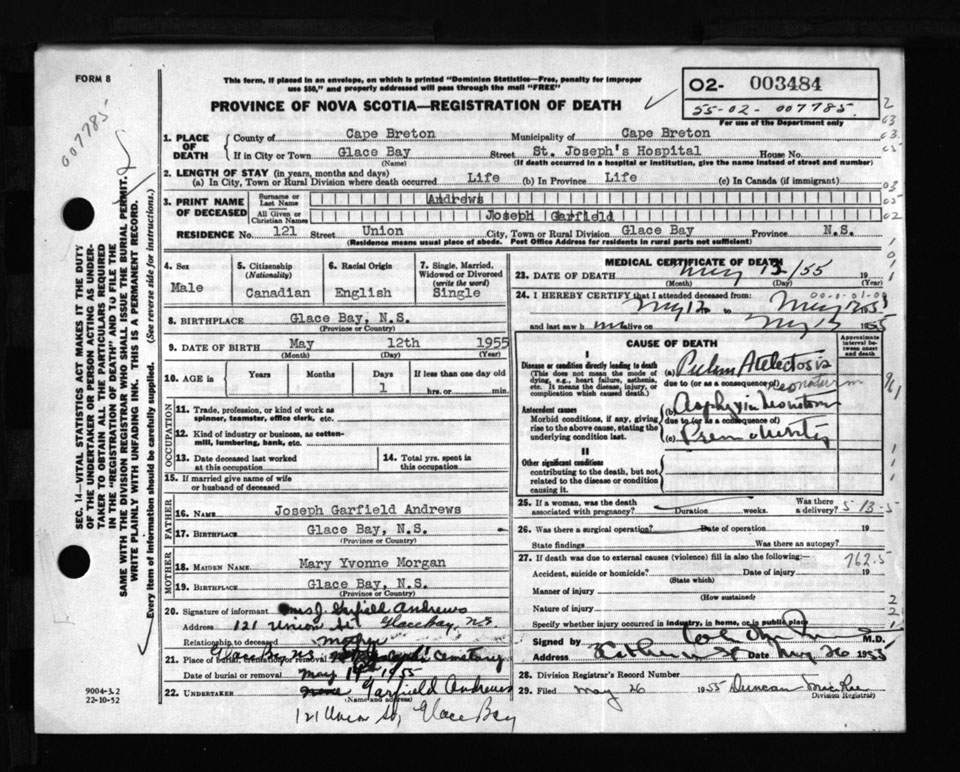 FORM 8
This form, if placed in an envelope, on which is printed "Dominion Statistics—Free, penalty for improper
use $50," and properly addressed will pass through the mail "FREE"
PROVINCE OF NOVA SCOTIA—REGISTRATION OF DEATH
02- 003484
55-02-007785
For use of the Department only
007785
1. PLACE OF DEATH
County of Cape Breton Municipality of Cape Breton
If in City or Town Glace Bay Street St. Joseph's Hospital House No.
(Name) (If death occurred in a hospital or institution, give the name instead of street and number)
2. LENGTH OF STAY (in years, months and days)
(a) In City, Town or Rural Division where death occurred Life (b) In Province Life (c) In Canada (if immigrant)
3. PRINT NAME OF DECEASED
Surname or Last Name Andrews
All Given or Christian Names Joseph Garfield
RESIDENCE No. 121 Street Union City, Town or Rural Division Glace Bay Province N.S.
(Residence means usual place of abode. Post Office Address for residents in rural parts not sufficient)
4. Sex
Male
5. Citizenship (Nationality)
Canadian
6. Racial Origin
English
7. Single, Married, Widowed or Divorced (write the word)
Single
8. BIRTHPLACE Glace Bay, N.S.
(Province or Country)
9. DATE OF BIRTH May 12th 1955
(Month) (Day) (Year)
10. AGE in Years Months Days 1 If less than one day old hrs. or min.
OCCUPATION
11. Trade, profession, or kind of work as
spinner, teamster, office clerk, etc.
12. Kind of industry or business, as cotton-
mill, lumbering, bank, etc.
13. Date deceased last worked
at this occupation
14. Total yrs. spent in
this occupation
15. If married give name of wife
or husband of deceased
FATHER
16. NAME Joseph Garfield Andrews
17. BIRTHPLACE Glace Bay, N.S.
(Province or Country)
MOTHER
18. MAIDEN NAME Mary Yvonne Morgan
19. BIRTHPLACE Glace Bay, N.S.
(Province or Country)
20. Signature of informant Mrs J. Garfield Andrews
Address 121 Union St. Glace Bay, N.S.
Relationship to deceased mother
21. Place of burial, cremation or removal Glace Bay N.S. Cemetery
Date of burial or removal May 14th 1955
22. UNDERTAKER Garfield Andrews
(Name and address)
121 Union St, Glace Bay
9004-3.2
22-10-52
MEDICAL CERTIFICATE OF DEATH
23. DATE OF DEATH May 13/55 19
(Month) (Day) (Year)
24. I HEREBY CERTIFY that I attended deceased from:
May 12 to May 13 1955
and last saw h im alive on May 13 1955
CAUSE OF DEATH
Approximate interval between onset and death
I
Disease or condition directly leading to death
(This does not mean the mode of
dying, e.g., heart failure, asthenia,
etc. It means the disease, injury, or
complication which caused death.)
(a) Pulm Atelectosis
due to (or as a consequence of)
Antecedent causes
Morbid conditions, if any, giving
rise to the above cause, stating the
underlying condition last.
(b) Asphyxia Neonatorum
due to (or as a consequence of)
(c) Prematurity
II
Other significant conditions
contributing to the death, but not
related to the disease or condition
causing it.
25. If a woman, was the death
associated with pregnancy? Duration weeks. Was there a delivery?
5-13-5
26. Was there a surgical operation? Date of operation 19
State findings Was there an autopsy?
27. If death was due to external causes (violence) fill in also the following:—
762.5
Accident, suicide or homicide? Date of injury 19
(State which)
Manner of injury
(How sustained)
Nature of injury
Specify whether injury occurred in industry, in home, or in public place
Signed by M.D.
Address Date May 26 1955
28. Division Registrar's Record Number
29. Filed May 26 1955 Duncan
Division Registrar
SEC. 14—VITAL STATISTICS ACT MAKES IT THE DUTY
OF THE UNDERTAKER OR PERSON ACTING AS UNDER-
TAKER TO OBTAIN ALL THE PARTICULARS REQUIRED
IN THE "REGISTRATION OF DEATH" AND TO FILE THE
SAME WITH THE DIVISION REGISTRAR WHO SHALL ISSUE THE BURIAL PERMIT.
WRITE PLAINLY WITH UNFADING INK. THIS IS A PERMANENT RECORD.
Every item of information should be carefully supplied. (See reverse side for instructions.)